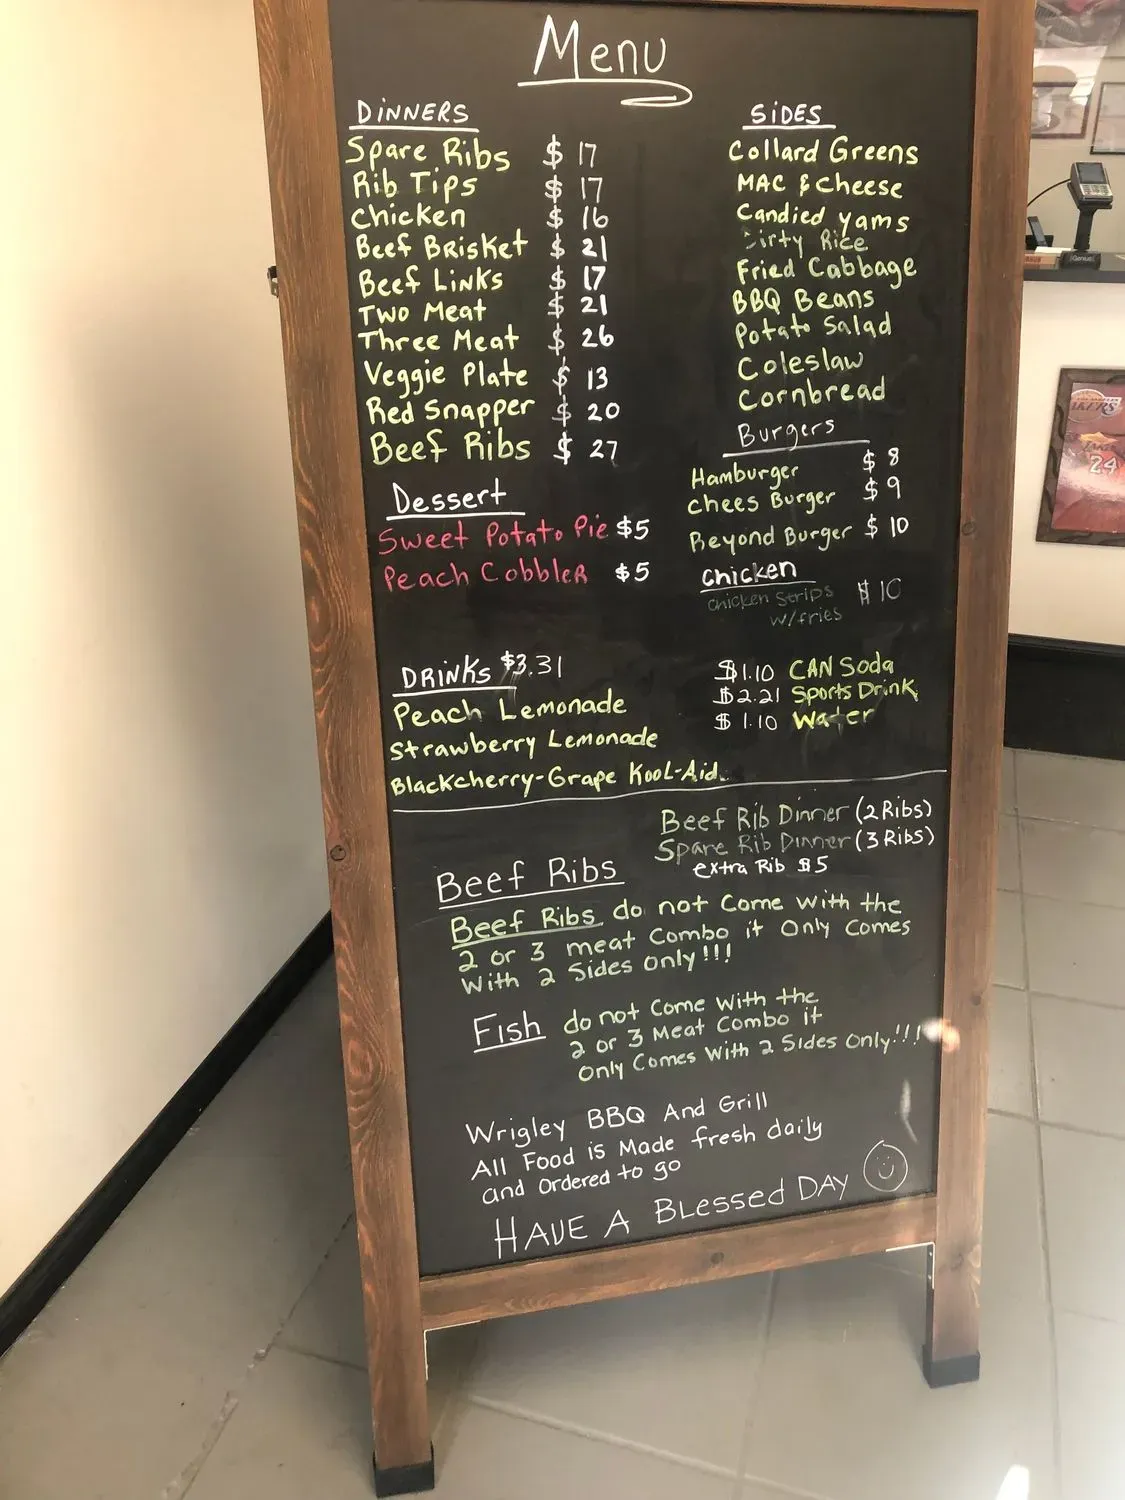 Menu
DINNERS
Spare Ribs $ 17
Rib Tips $ 17
Chicken $ 16
Beef Brisket $ 21
Beef Links $ 17
Two Meat $ 21
Three Meat $ 26
Veggie Plate $ 13
Red Snapper $ 20
Beef Ribs $ 27
SIDES
Collard Greens
MAC & Cheese
Candied Yams
Dirty Rice
Fried Cabbage
BBQ Beans
Potato Salad
Coleslaw
Cornbread
Burgers
Hamburger $ 8
Chees Burger $ 9
Beyond Burger $ 10
Chicken
Chicken Strips $ 10
w/fries
Dessert
Sweet Potato Pie $5
Peach Cobbler $5
DRINKS $3.31
Peach Lemonade
Strawberry Lemonade
Blackcherry-Grape Kool-Aid
$1.10 CAN Soda
$2.21 Sports Drink
$ 1.10 Water
Beef Rib Dinner (2 Ribs)
Spare Rib Dinner (3 Ribs)
extra Rib $5
Beef Ribs
Beef Ribs do not Come With the
2 or 3 meat Combo it Only Comes
With 2 Sides only!!!
Fish do not Come With the
2 or 3 Meat Combo it
Only Comes With 2 Sides Only!!!
Wrigley BBQ And Grill
All Food is Made fresh daily
and Ordered to go
HAVE A Blessed DAY
Genius
LAKERS
24